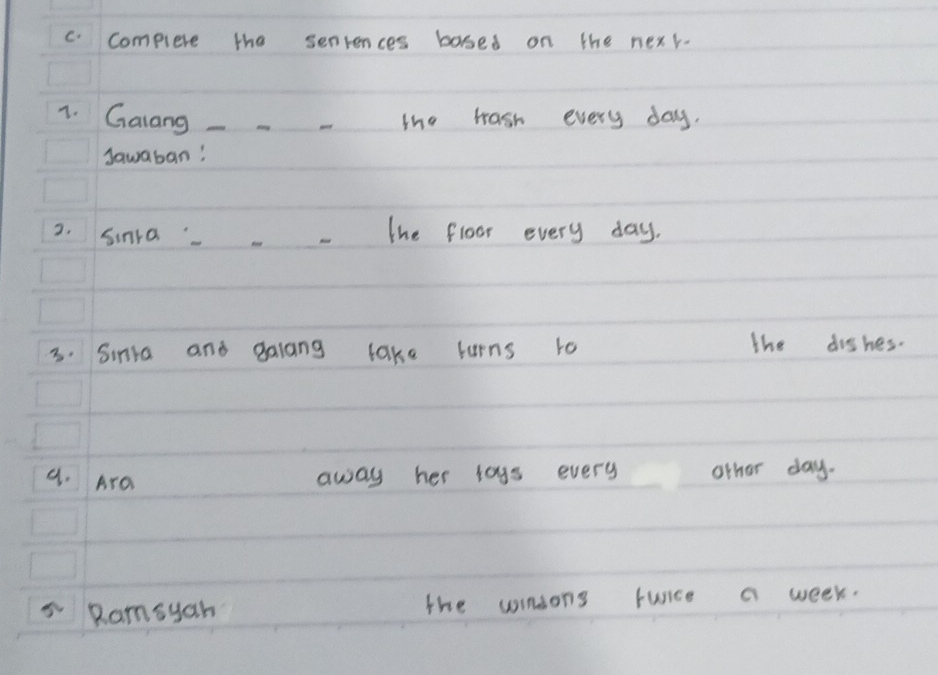 C. Complete the sentences based on the next.
1. Galang _ _ _ the trash every day.
Jawaban:
2. Sinta _ _ _ the floor every day.
3. Sinta and galang take turns to the dishes.
4. Ara away her toys every other day.
5. Ramsyah the windons twice a week.